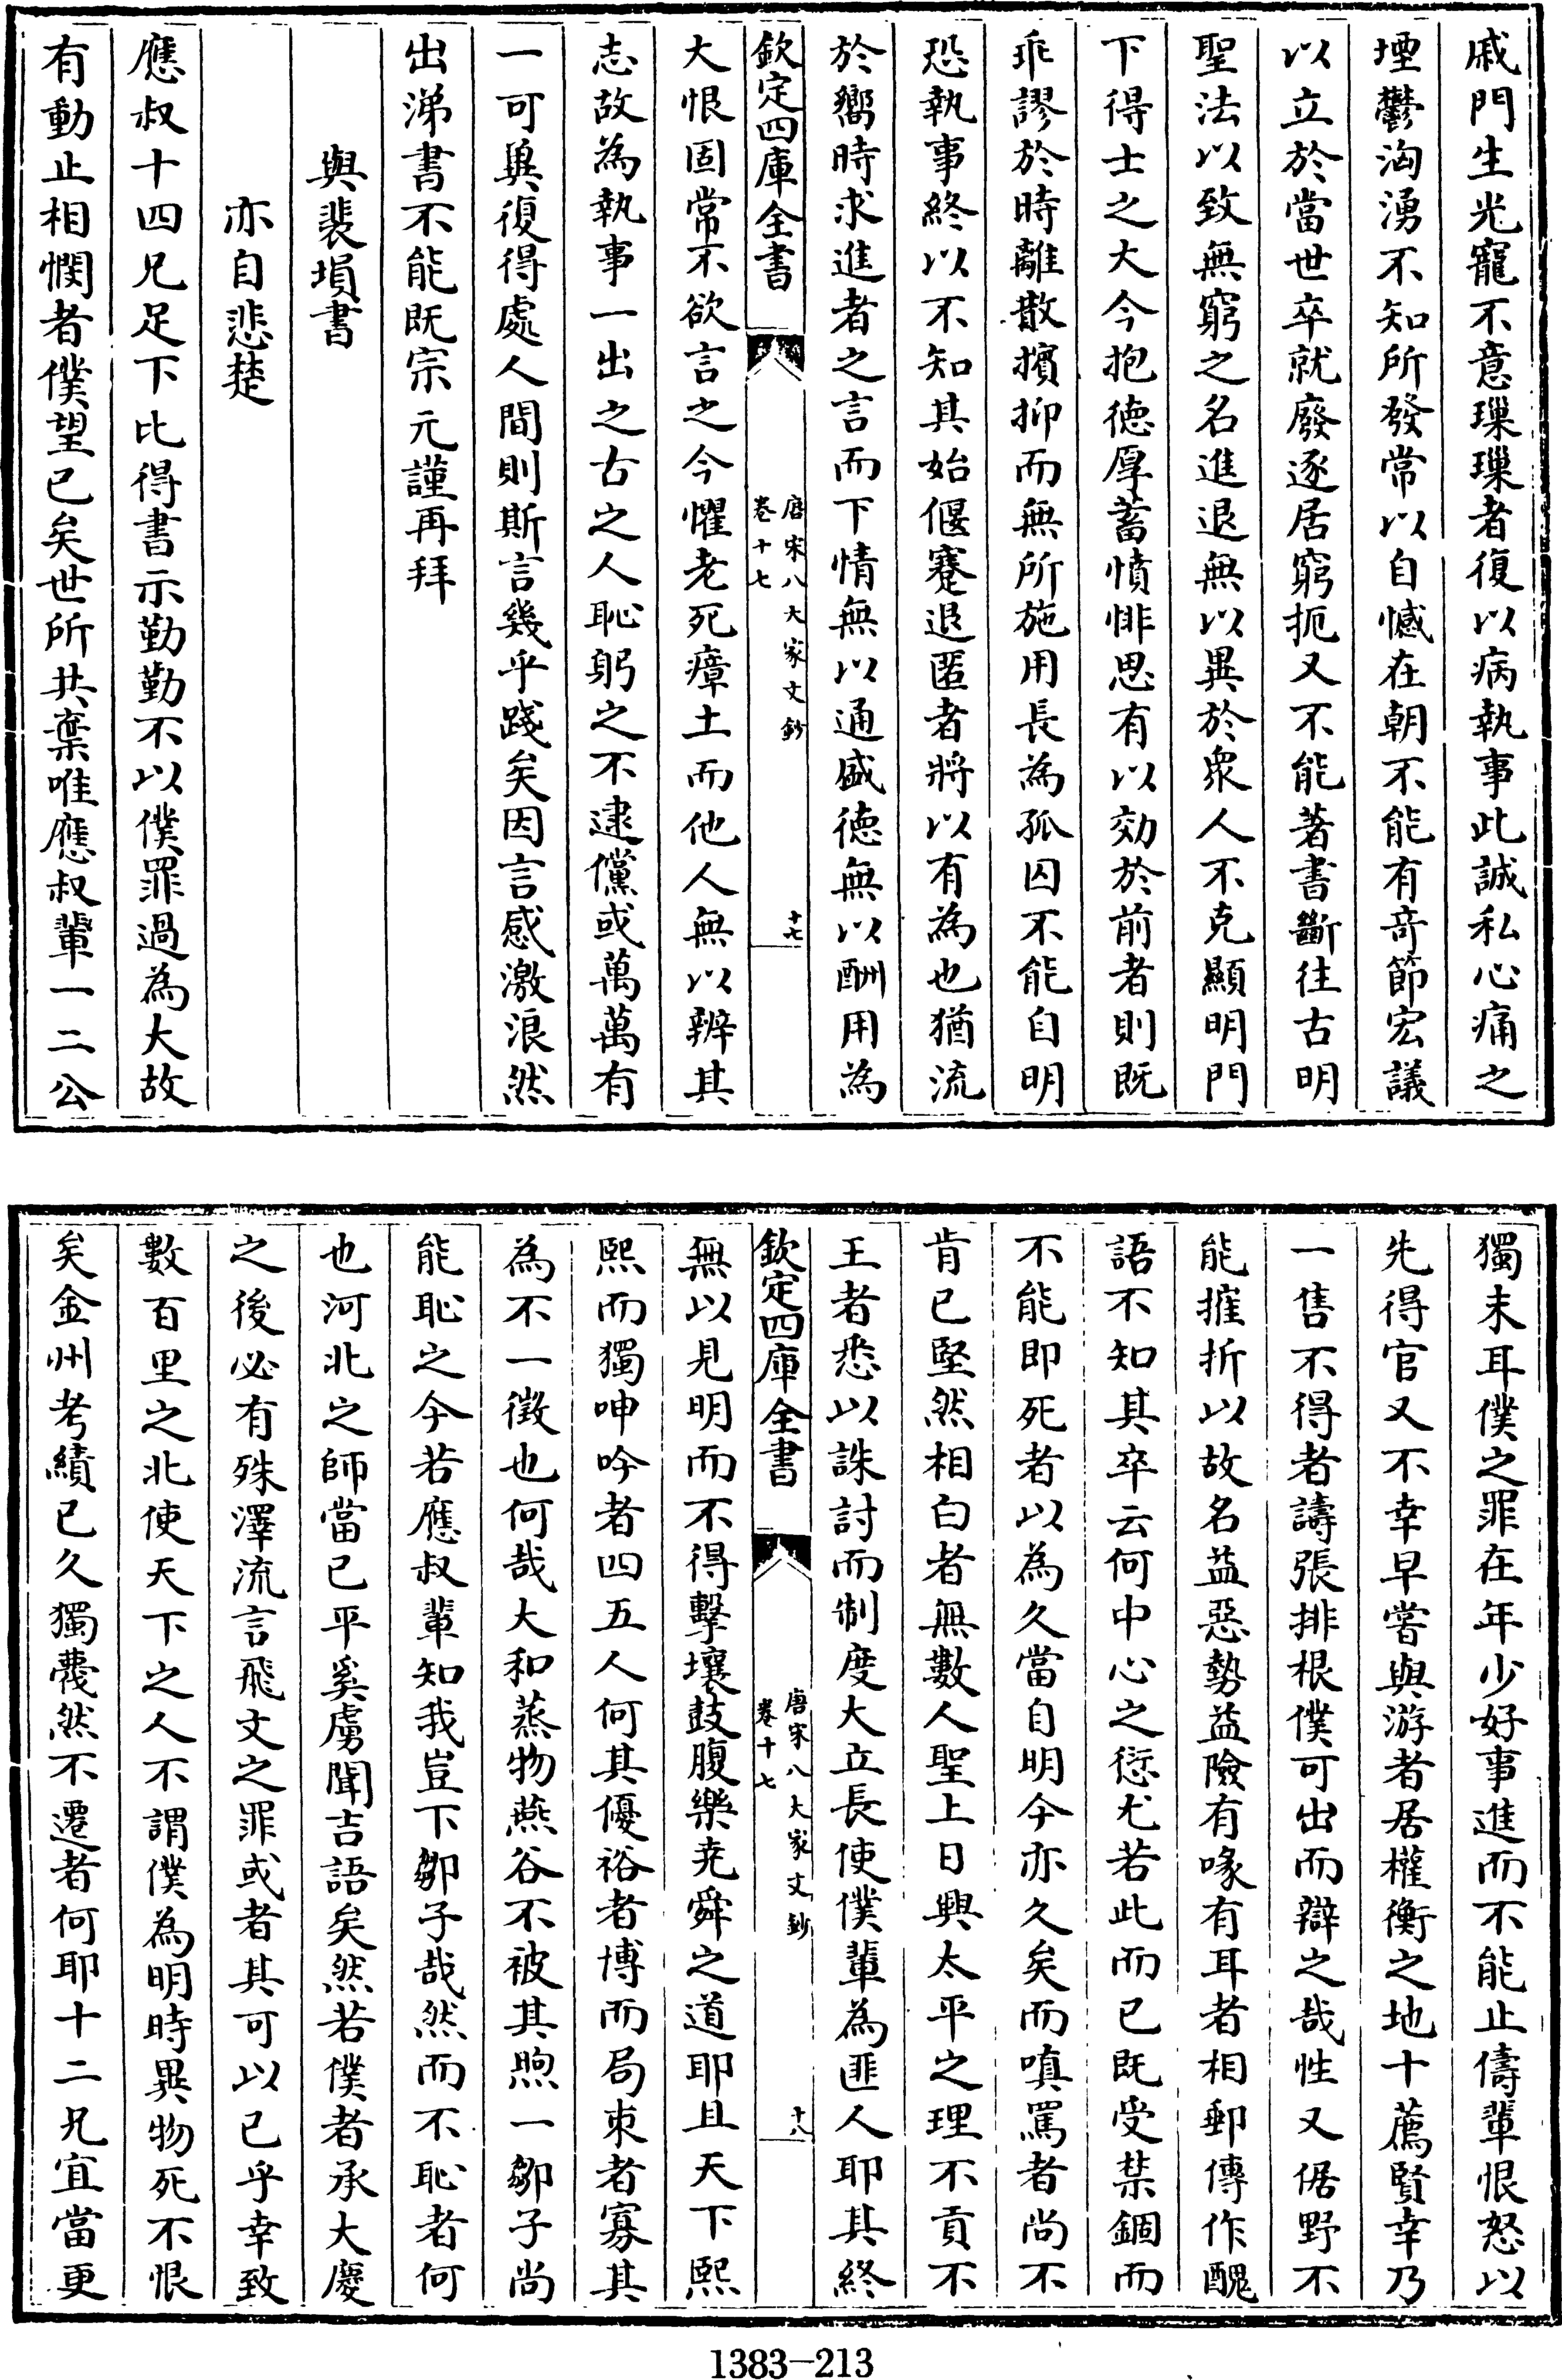 戚門生光寵不意璅璅者復以病執事此誠私心痛之
堙鬱洶湧不知所發常以自憾在朝不能有奇節宏議
以立於當世卒就廢逐居窮扼又不能著書斷往古明
聖法以致無窮之名進退無以異於衆人不克顯明門
下得士之大今抱徳厚蓄憤悱思有以効於前者則既
乖謬於時離散擯抑而無所施用長為孤囚不能自明
恐執事終以不知其始偃蹇退匿者將以有為也猶流
於嚮時求進者之言而下情無以通盛徳無以酬用為
欽定四庫全書
唐宋八大家文鈔
卷十七
十七
大恨固常不欲言之今懼老死瘴土而他人無以辨其
志故為執事一出之古之人恥躬之不逮儻或萬萬有
一可兾復得處人間則斯言幾乎踐矣因言感激浪然
出涕書不能既宗元謹再拜
與裴塤書
亦自悲楚
應叔十四兄足下比得書示勤勤不以僕罪過為大故
有動止相憫者僕望已矣世所共棄唯應叔輩一二公
獨未耳僕之罪在年少好事進而不能止儔輩恨怒以
先得官又不幸早嘗與游者居權衡之地十薦賢幸乃
一售不得者譸張排根僕可出而辯之哉性又倨野不
能摧折以故名益惡勢益險有喙有耳者相郵傳作醜
語不知其卒云何中心之愆尤若此而已既受禁錮而
不能即死者以為久當自明今亦久矣而嗔罵者尚不
肯已堅然相白者無數人聖上日興太平之理不貢不
王者悉以誅討而制度大立長使僕輩為匪人耶其終
欽定四庫全書
唐宋八大家文鈔
卷十七
十八
無以見明而不得擊壤鼓腹樂尭舜之道耶且天下熙
熙而獨呻吟者四五人何其優裕者博而局束者寡其
為不一徵也何哉大和蒸物燕谷不被其煦一鄒子尚
能恥之今若應叔輩知我豈下鄒子哉然而不恥者何
也河北之師當已平奚虜聞吉語矣然若僕者承大慶
之後必有殊澤流言飛文之罪或者其可以已乎幸致
數百里之北使天下之人不謂僕為明時異物死不恨
矣金州考績已久獨蔑然不遷者何耶十二兄宜當更
1383-213